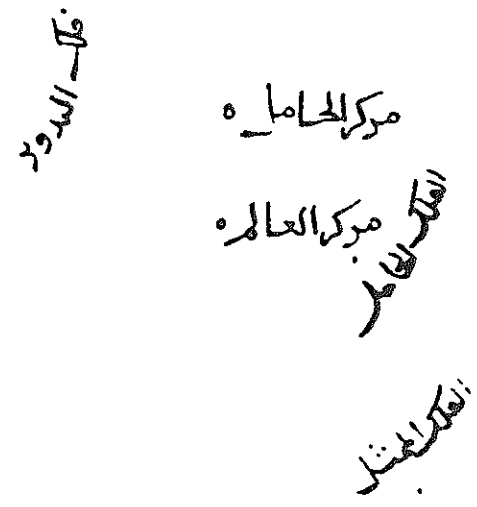 فلك التدوير
مركز الحامل
مركز العالم
الفلك الحامل
الفلك الممثل